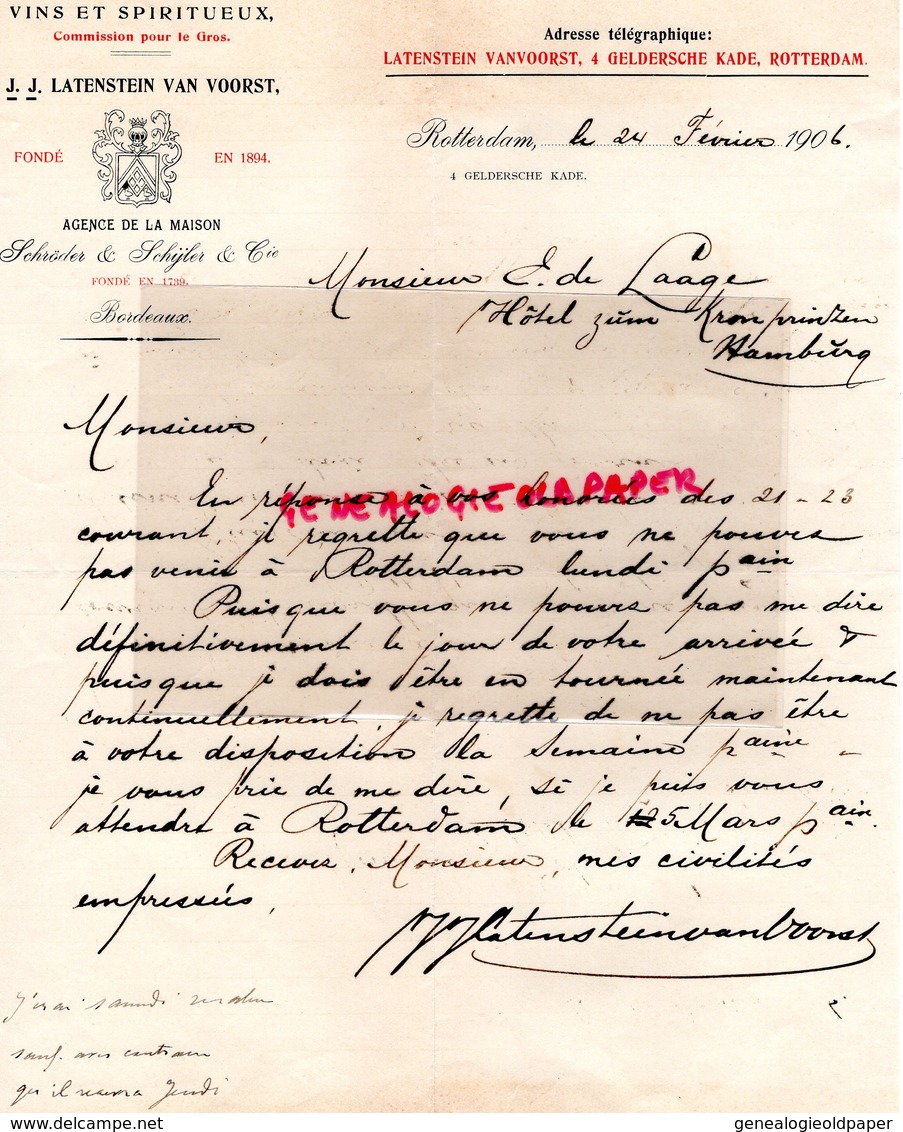 VINS ET SPIRITUEUX,
Commission pour le Gros.
J. J. LATENSTEIN VAN VOORST,
FONDÉ EN 1894.
AGENCE DE LA MAISON
Schröder & Schÿler & Cie
FONDÉ EN 1739.
Bordeaux.
Adresse télégraphique:
LATENSTEIN VANVOORST, 4 GELDERSCHE KADE, ROTTERDAM.
Rotterdam, le 24 Février 1906.
4 GELDERSCHE KADE.
Monsieur E. de Laage
Hôtel zum Kronprinzen
Hamburg
Monsieur,
En réponse à vos honorées des 21 - 23
GENEALOGIE OLD PAPER
courant, je regrette que vous ne pouvez
pas venir à Rotterdam lundi pain
Puisque vous ne pouvez pas me dire
définitivement le jour de votre arrivée &
puisque je dois être en tournée maintenant
continuellement, je regrette de ne pas être
à votre disposition la semaine paine -
je vous prie de me dire, si je puis vous
attendre à Rotterdam le 5 Mars pain.
Recevez, Monsieur, mes civilités
empressées,
JJLatensteinvanVoorst
J'irai samedi
sauf avis contraire
qu'il recevra Jeudi
delcampe.net
genealogieoldpaper